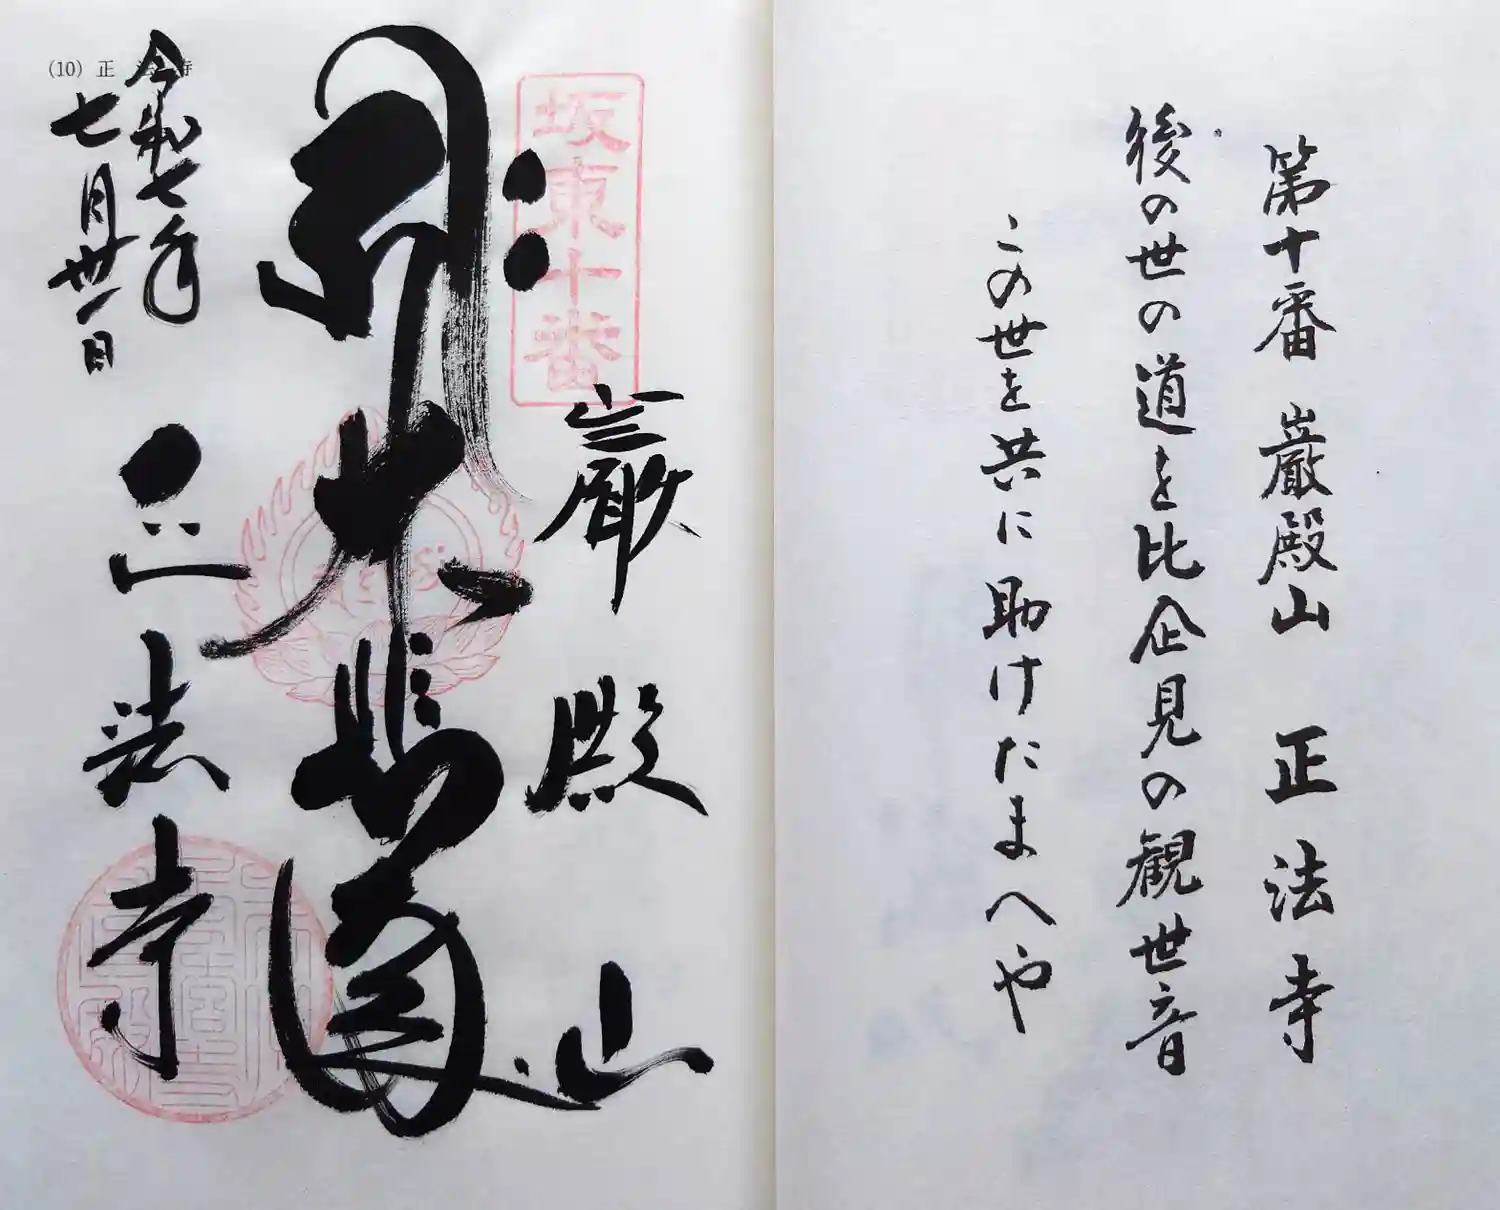 第十番 巌殿山 正法寺
後の世の道を比企見の観世音
この世を共に助けたまへや
坂東十番
巌殿山
大悲閣
正法寺
令和七年
七月卅一日
(10) 正法寺